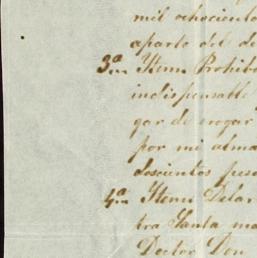 mil ochociento
aparte del de
3ª Ytem Prohibo
indispensable
gar de rogar
por mi alma
doscientos peso
4ª Ytem Delar
tra Santa ma
Doctor Don